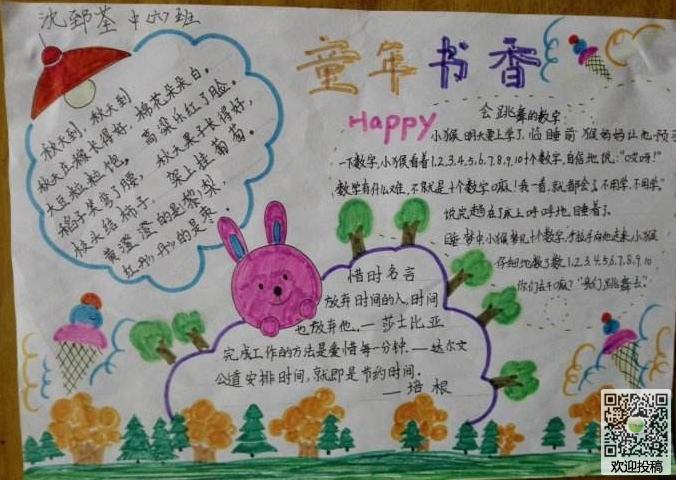 沈郅荃 中(六)班
童年书香
Happy
秋天到,秋天到,
秋天庄稼长得好,棉花朵朵白。
大豆粒粒饱。高粱乐红了脸。
稻子笑弯了腰,秋天果子长得好,
枝头结柿子,架上挂葡萄。
黄澄澄的是黎梨,
红彤彤的是枣。
会跳舞的数字
小猴明天要上学了,临睡前猴妈妈让他预
一下数字,小猴看着1、2、3、4、5、6、7、8、9、10十个数字,自信地说:"哎呀!"
数学有什么难,不就是十个数字嘛!我一看,就都会了,不用学,不用学。"
说完趟在了床上呼呼地睡着了。
睡梦中,小猴梦见十个数字,手拉手向他走来,小猴
仔细地数了数1、2、3、4、5、6、7、8、9、10
你们去干嘛?"我们跳舞去。"
惜时名言
放弃时间的人,时间
也放弃他。—莎士比亚
完成工作的方法是爱惜每一分钟。—达尔文
合道安排时间,就即是节约时间。
—培根
欢迎投稿